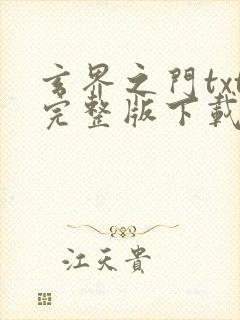 玄界之門txt
完整版下載
江天貴